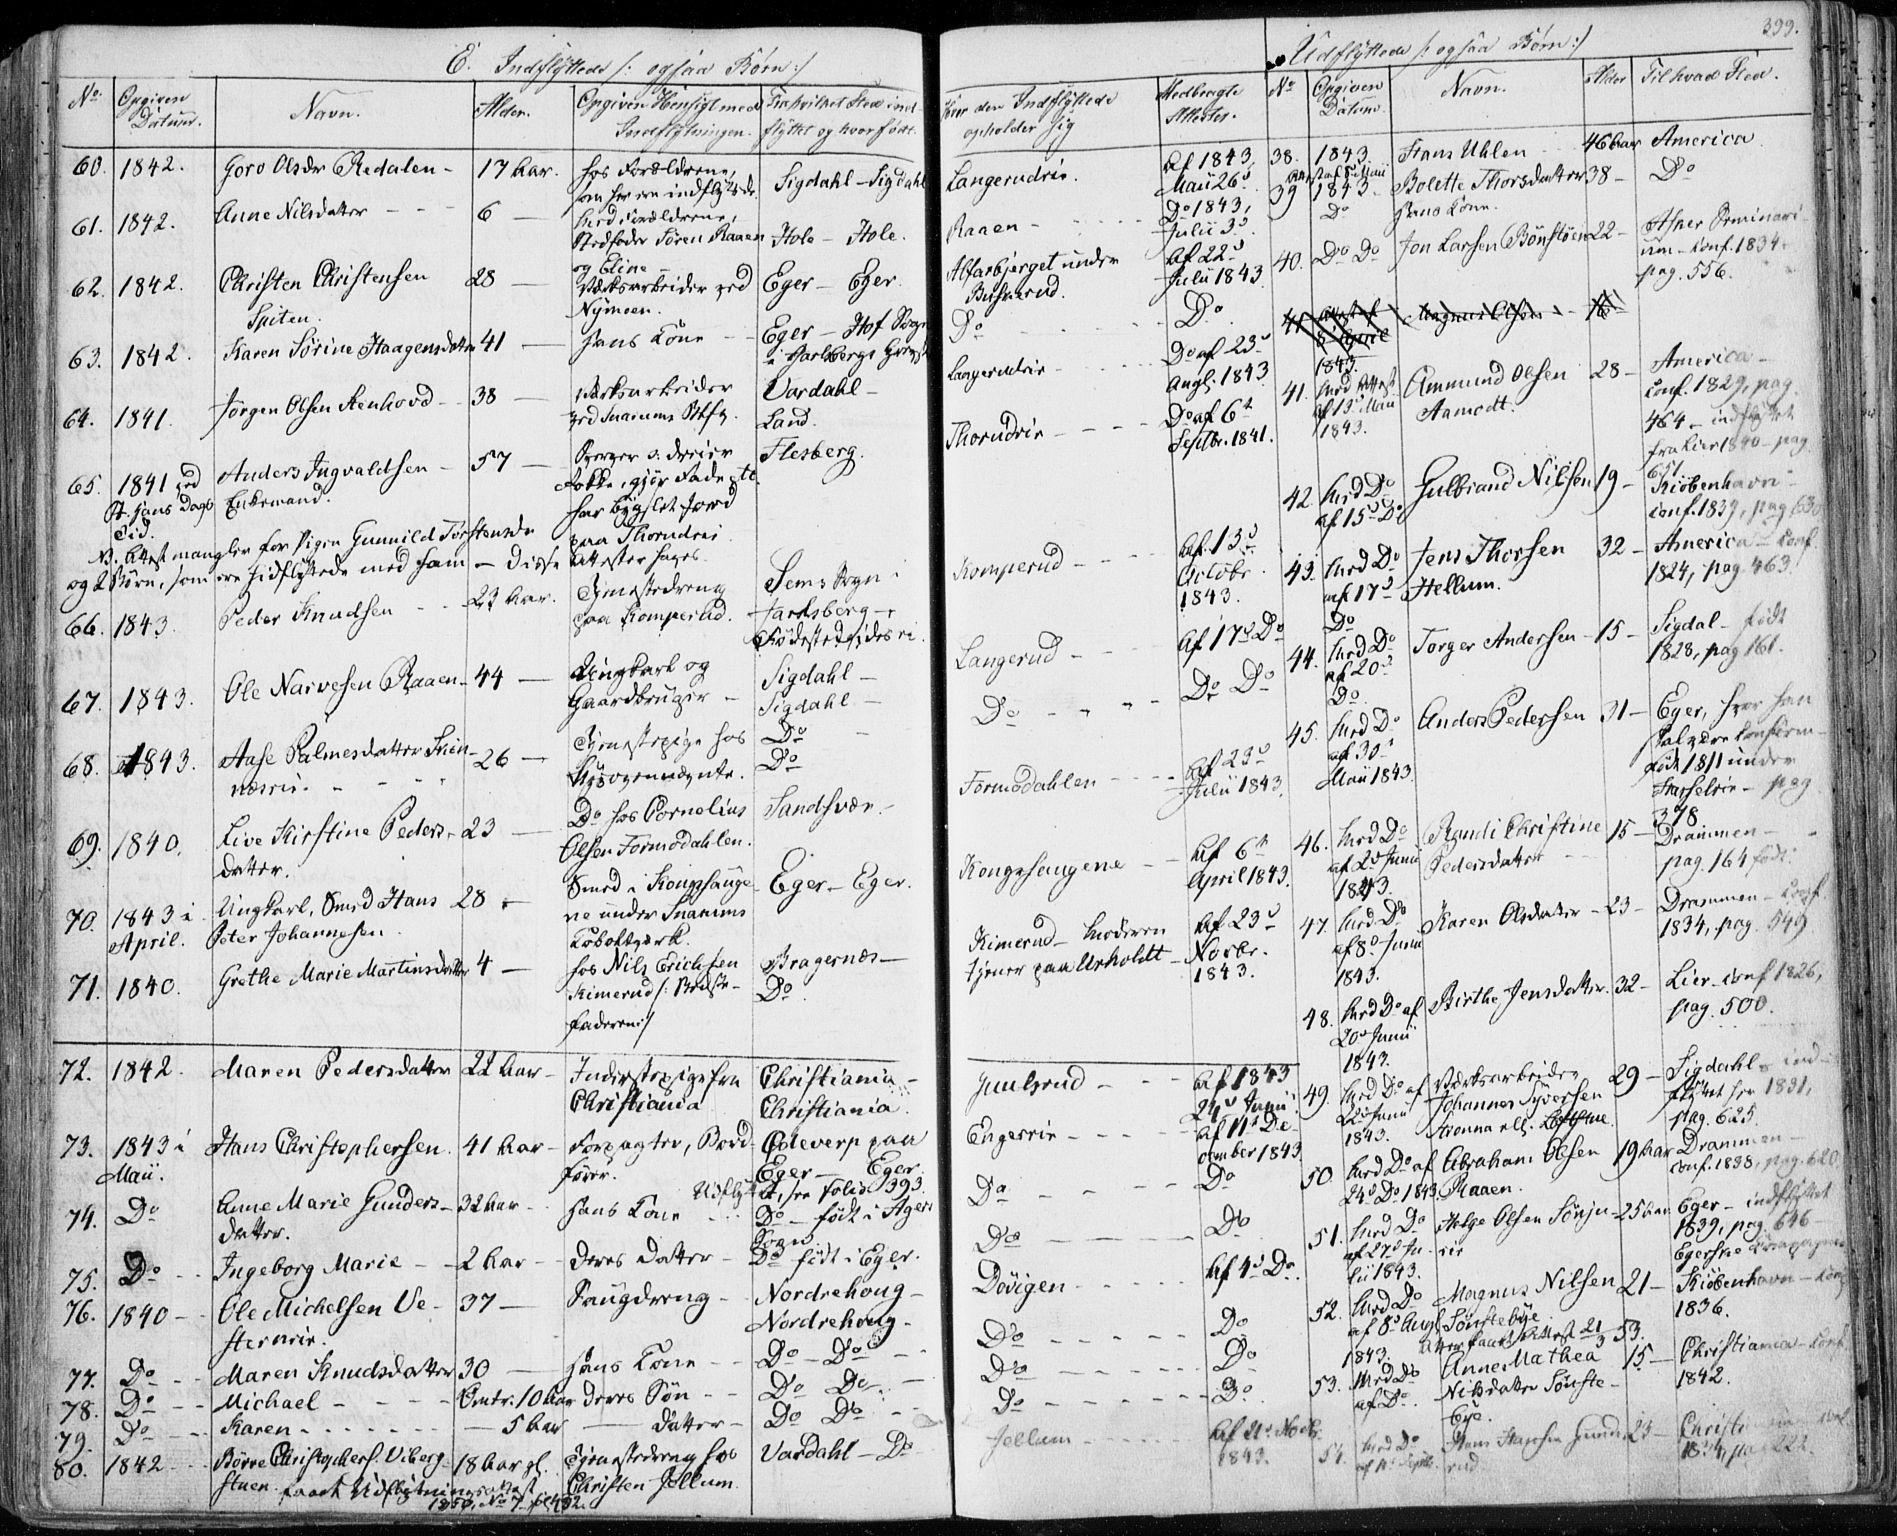 E. Indflyttede /: ogsaa Børn :/
No
Opgiven Datum.
Navn.
Alder.
Opgiven Hensigt med Indflytningen.
Fra hvilket Sted indflyttet og hvor født.
60. 1842. Goro Olsdr Redalen - 17 Aar. hos Forældrene, som her ere indflyttede. Sigdahl - Sigdahl
61. 1842. Anne Nilsdatter - - - 6 - med Forældrene, Stedfader Søren Raaen og Eline Hole - Hole.
62. 1842. Christen Christensen Spiten. 28 - Værksarbeider ved Nymoen. Eger - Eger.
63. 1842. Karen Sørine Haagensdatter 41 - hans Kone - Eger - Hof Sogn i Jarlsbergs Grevsk.
64. 1841. Jørgen Olsen Stenhovd - 38 - Værksarbeider ved Snarums Vardahl - Land.
65. 1841 ved St. Hans Dags Tid. Anders Ingvaldsen - Enkemand. 57 - har bygslet Jord paa Thorudrei Flesberg.
NB. Attest mangler for Pigen Gunnild Torstensdr
og 2 Børn, som ere hidflyttede med ham - disse Attester haves
66. 1843. Peder Knudsen - - 23 Aar. Tjenestedreng paa Komperud. Sems Sogn i Jarlsberg - Fødestedet ides ei.
67. 1843. Ole Narvesen Raaen - 44 - Ungkarl og Gaardbruger - Sigdahl - Sigdahl -
68. 1843. Aase Palmesdatter Skinnæsrii - 26 - Tjenestepige hos Do Do
69. 1840. Live Kirstine Pedersdatter. 23 - Do hos Cornelius Olsen Formodahlen. Sandsvær -
70. 1843 i April. Ungkarl, Smed Hans Peter Johannesen. 28 - Smed i Kongshaugene under Snarums Koboltværk. Eger - Eger.
71. 1840. Grethe Marie Martinsdatter 4 - hos Nils Erichsen Kimerud /: Stedfaderen :/ Bragernæs - Do
72. 1842. Maren Pedersdatter 22 Aar - Inderstepige fra Christiania Christiania - Christiania.
73. 1843 i Maii. Hans Christophersen. 41 Aar - Forpagter, Bordfører. Edeverp paa Eger - Eger.
Udflyttet, see Folio 393.
74. Do Anne Marie Gundersdatter. 32 Aar - hans Kone - Do - født i Agers Sogn
75. Do - Ingeborg Marie - - 2 Aar - deres Datter - Do født i Eger.
76. 1840 - Ole Michelsen Vesternrie. 37 - Saugdreng - Nordrehoug - Nordrehoug -
77. Do - Maren Knudsdatter 30 - hans Kone - Do - Do -
78. Do - Michael - - - Omtr. 10 Aar deres Søn - - Do Do -
79. Do - Karen - - - - 5 Aar - Datter - Do Do -
80. 1842 - Børre Christophers. Vibergstuen 18 Aar gl. Tjenestedreng hos Christen Jellum. Vardahl - Do
faaet Udflytningsattest 1850, No 7

Hvor den Indflyttede opholder sig
Medbragte Attester.
Langerudrie. af 1843, Maii 26d
Raaen - - - Do 1843, Julii 3d
Alfarbjerget under Buskerud. af 22d Julii 1843
Do - - - Do
Langerudrie - - - Do af 23d Aug. 1843
Thorudrie - - - Do af 6te Septbr. 1841.
Komperud - - af 13d Octobr. 1843.
Langerud - - af 17d Do
Do - - - Do Do
Formodahlen - - - af 23d Julii 1843.
Kongshaugene - - af 6te April 1843.
Kimerud - Moderen tjener paa Urholdt - af 23d Novbr. 1843.
Juulsrud - - - af 1843 24d Junii
Engerrie - - - af 11te December 1843
Do - - - Do
Do - - - Do
Døvigen - - - af 4d Do.
Do - - - Do
Do - - - Do
Do - - - Do
Jellum - - - af 21d Novbr. 1843.

399.
Udflyttede /: ogsaa Børn :/
No
Opgiven Datum.
Navn.
Alder
Til hvad Sted.
38. 1843. Attest af 8d Maii Frans Uhlen - 46 Aar America
39 1843. Do Bolette Thorsdatter hans Kone. 38 - Do
40. Do Do Jon Larsen Bønsløien 22 - Asker Seminarium - conf. 1834. pag. 556.
41. Attest af April 1843 Magnus Olsen - 18
41. med Attest af 13d Maii 1843. Ammund Olsen Aamodt. 28 - America - conf. 1829, pag. 464 - indflyttet fra Lier 1840 - pag. 651.
42. med Do af 15d Do Gulbrand Nilsen 19 - Kiøbenhavn - conf. 1839, pag 630
43. med Do af 17d Do Jens Thorsen Hellum. 32 - America - conf. 1824, pag. 463.
44. med Do af 20d Do Torger Andersen - 15 - Sigdal - født 1828, pag 161.
45. med Do af 30d Maii 1843. Anders Pedersen 31 - Eger, hvor han født 1811 under Hasselrie - pag 378.
46. med Do af 2d Junii 1843. Randi Christine Pedersdatter 15 - Drammen - pag. 164 født.
47. med Do af 8d Junii 1843. Karen Olsdatter - 23 - Drammen - conf 1834, pag. 549
48. med Do af 20d Junii 1843. Birthe Jensdatter. 32 - Lier - conf 1826, pag. 500.
49. med Do af 22d Junii 1843. Værksarbeider Johannes Syversen 29 - Sigdahl - indflyttet her 1831, pag. 625.
50. med Do af 24d Do 1843. Abraham Olsen Raaen. 19 Aar Drammen - conf. 1838, pag. 620
51. med Do af 27d Junii 1843. Helge Olsen Sønjurie 25 Aar Eger - indflyttet 1839, pag. 646 - Egerske Kompagnie
52. med Do af 8d Aug. 1843. Magnus Nilsen Sønstebye 21 - Kiøbenhavn - conf 1836.
atter faaet Attest 21/3 53.
53. med Do af Do. Anne Mathea Nilsdatter Sønstebye. 15 - Christiania - conf. 1842.
54. med Do Hans 23 -